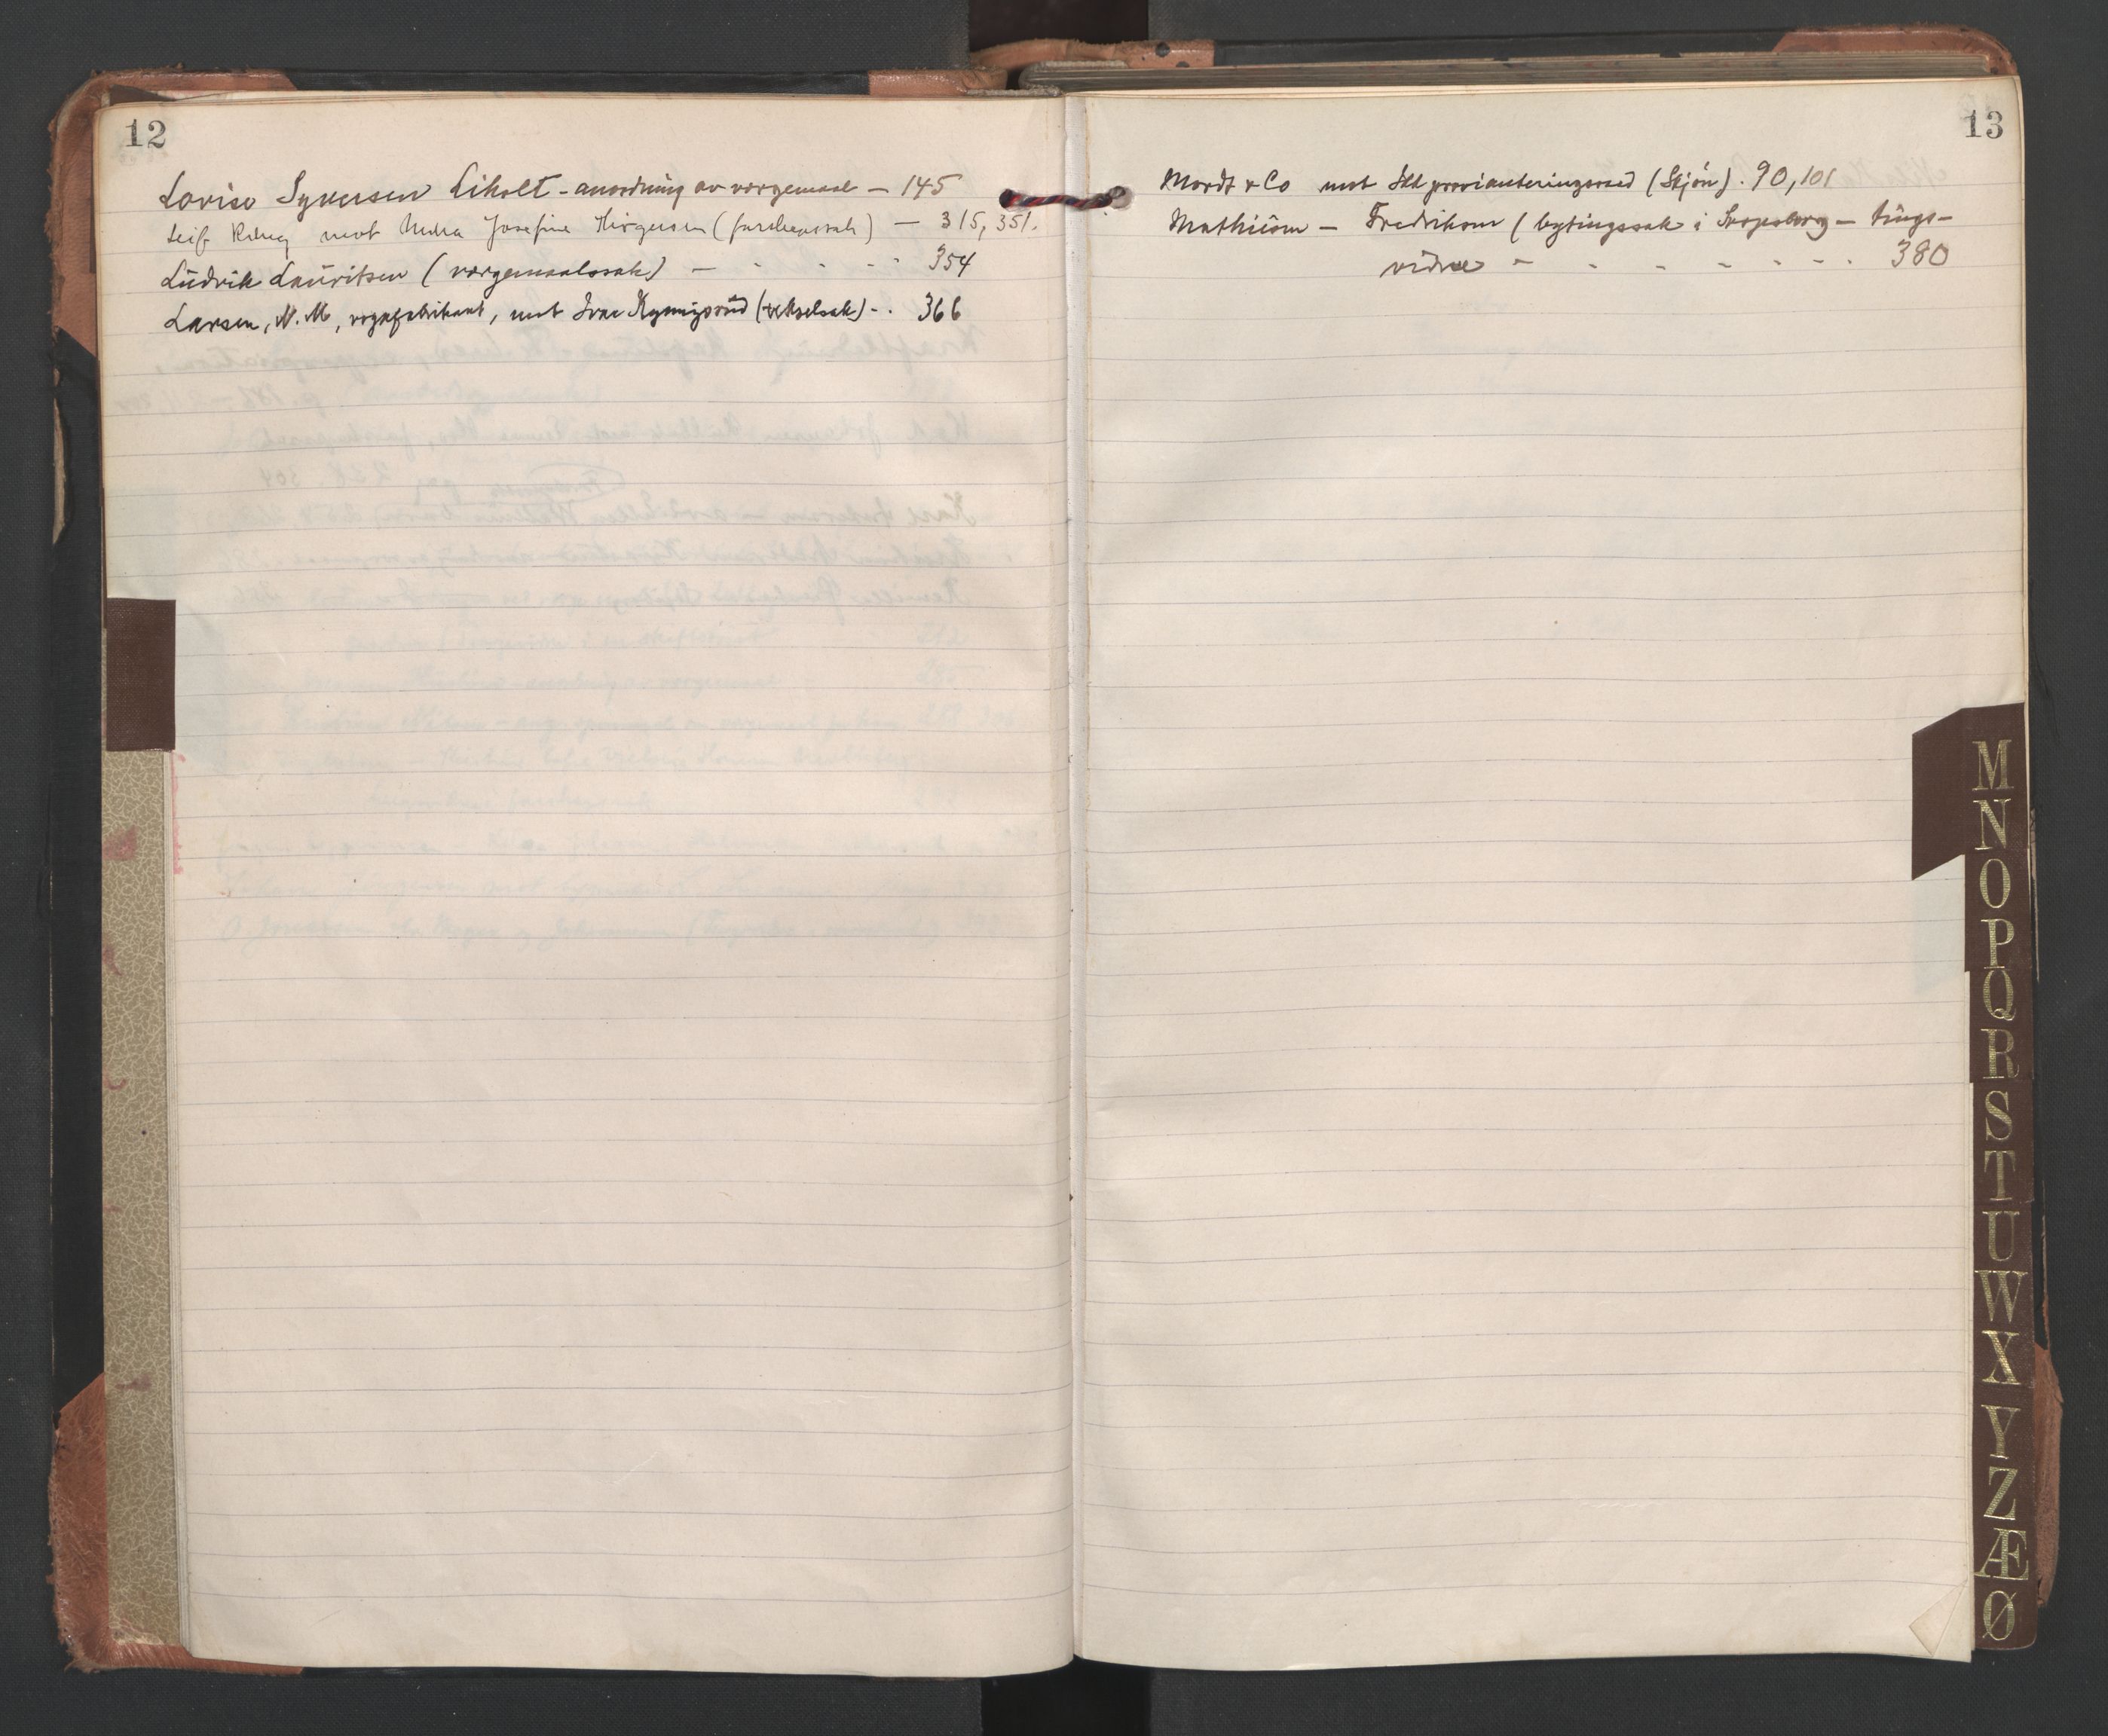 12
Lovise Syversen Liholt - anordning av vergemaal — 145
Leif mot Josefine (farskapssak) — 315, 351.
Ludvik Lauritsen (vergemaalssak) — - - - - 354
Larsen, N. M, vognfabrikant, mot Ivar (vekselsak) - . 366
13
Mordt & Co mot provianteringsraad (Skjøn) . 90, 101
Mathiesen — Fredriksen (bytingssak i Sarpsborg — tings-
vidne - - - - - - - 380
M
N
O
P
Q
R
S
T
U
W
X
Y
Z
Æ
Ø